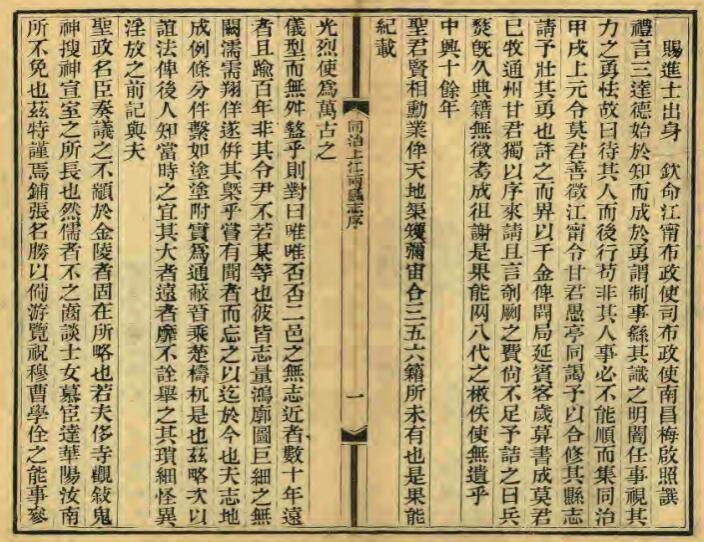 賜進士出身 欽命江甯布政使司布政使南昌梅啟照譔
禮言三達德始於知而成於勇謂制事繇其識之明闇任事視其
力之勇怯故曰待其人而後行苟非其人事必不能順而集同治
甲戌上元令莫君善徵江甯令甘君愚亭同謁予以合修其縣志
請予壯其勇也許之而畀以千金俾開局延賓客歲算書成莫君
已牧通州甘君獨以序來請且言剞劂之費尙不足予詰之曰兵
燹旣久典籍無徵耇成徂謝是果能网八代之佚使無遺乎
中興十餘年
聖君賢相勳業侔天地榘矱彌宙合三五六籍所未有也是果能
紀載
同治上江兩縣志序 一
光烈使爲萬古之
儀型而無舛盭乎則對曰唯唯否否二邑之無志近者數十年遠
者且踰百年非其令尹不若某等也彼皆志量鴻廓圖巨細之無
闕濡需翔佯遂併其槩乎嘗有聞者而忘之以迄於今也夫志地
成例條分件繫如塗塗附實爲通蔽晉乘楚檮杌是也茲略次以
誼法俾後人知當時之宜其大者遠者靡不詮舉之其瑣細怪異
淫放之前記與夫
聖政名臣奏議之不顓於金陵者固在所略也若夫侈寺觀敍鬼
神搜神宣室之所長也然儒者不之齒談士女慕宦達華陽汝南
所不免也茲特謹焉鋪張名勝以侚游覽祝穆曹學佺之能事參